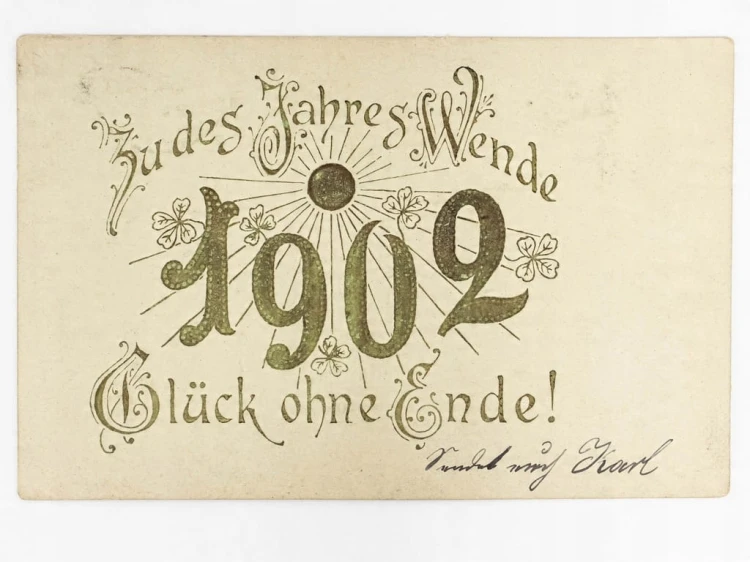 Zu des Jahres Wende
1902
Glück ohne Ende!
Sendet euch Karl